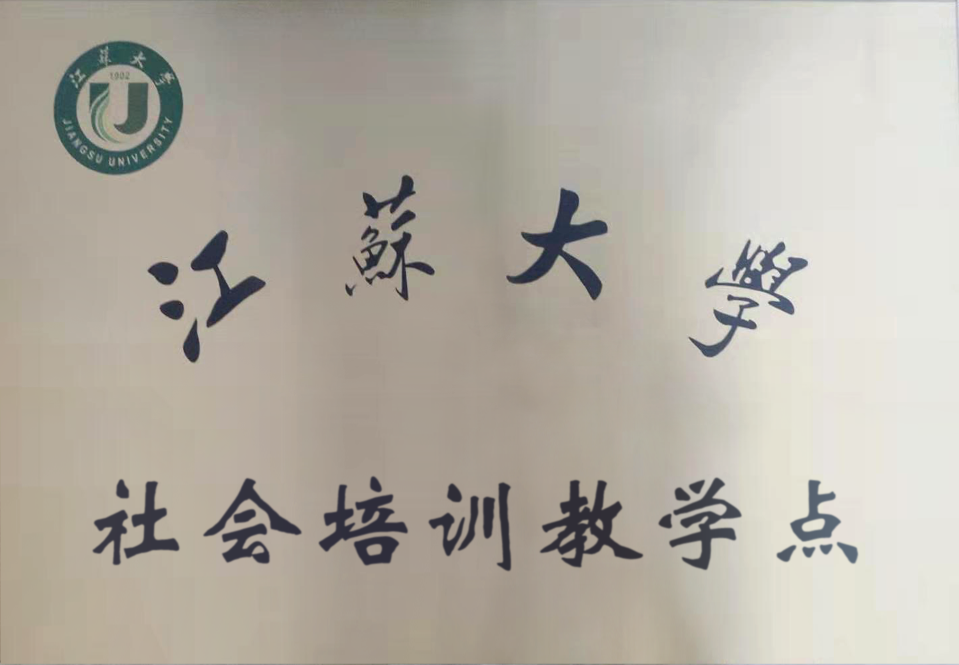 江蘇大學
1902
JIANGSU UNIVERSITY
江蘇大學
社会培训教学点